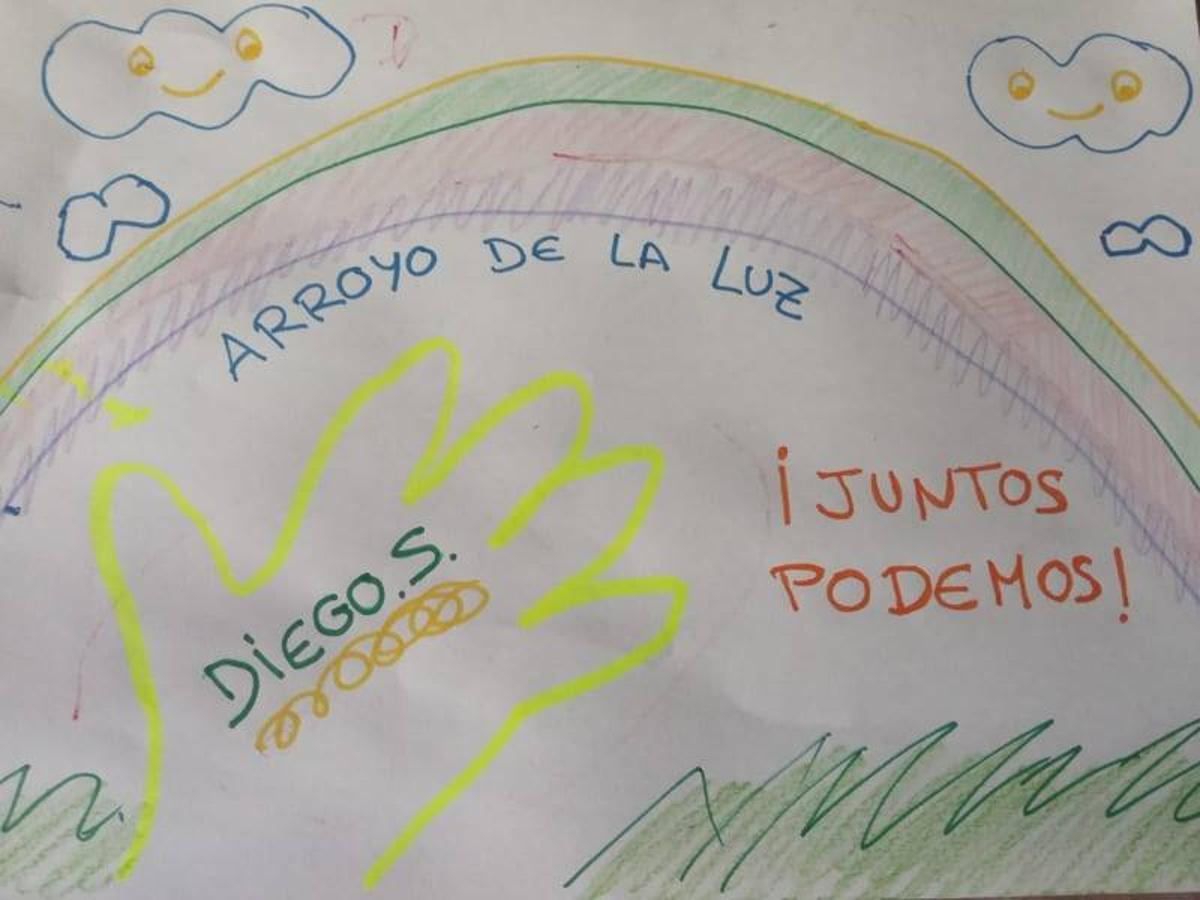 ARROYO DE LA LUZ
DIEGO.S.
¡JUNTOS
PODEMOS!